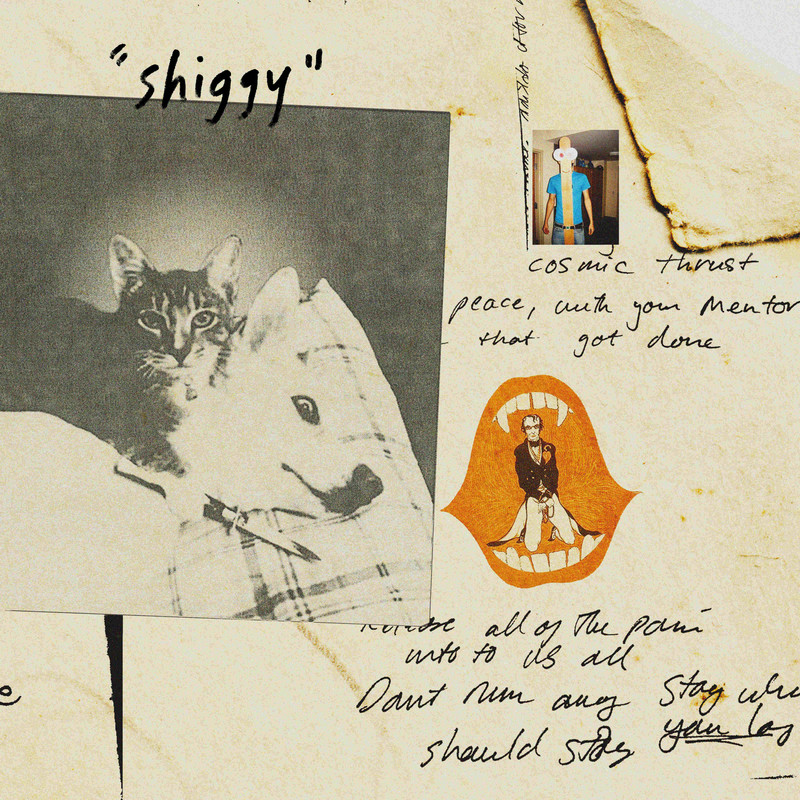 "shiggy"
cosmic thrust
peace, with your Mentor
that got done
all of the pain
into to us all
Dont run away Stay
should stay you lay
e